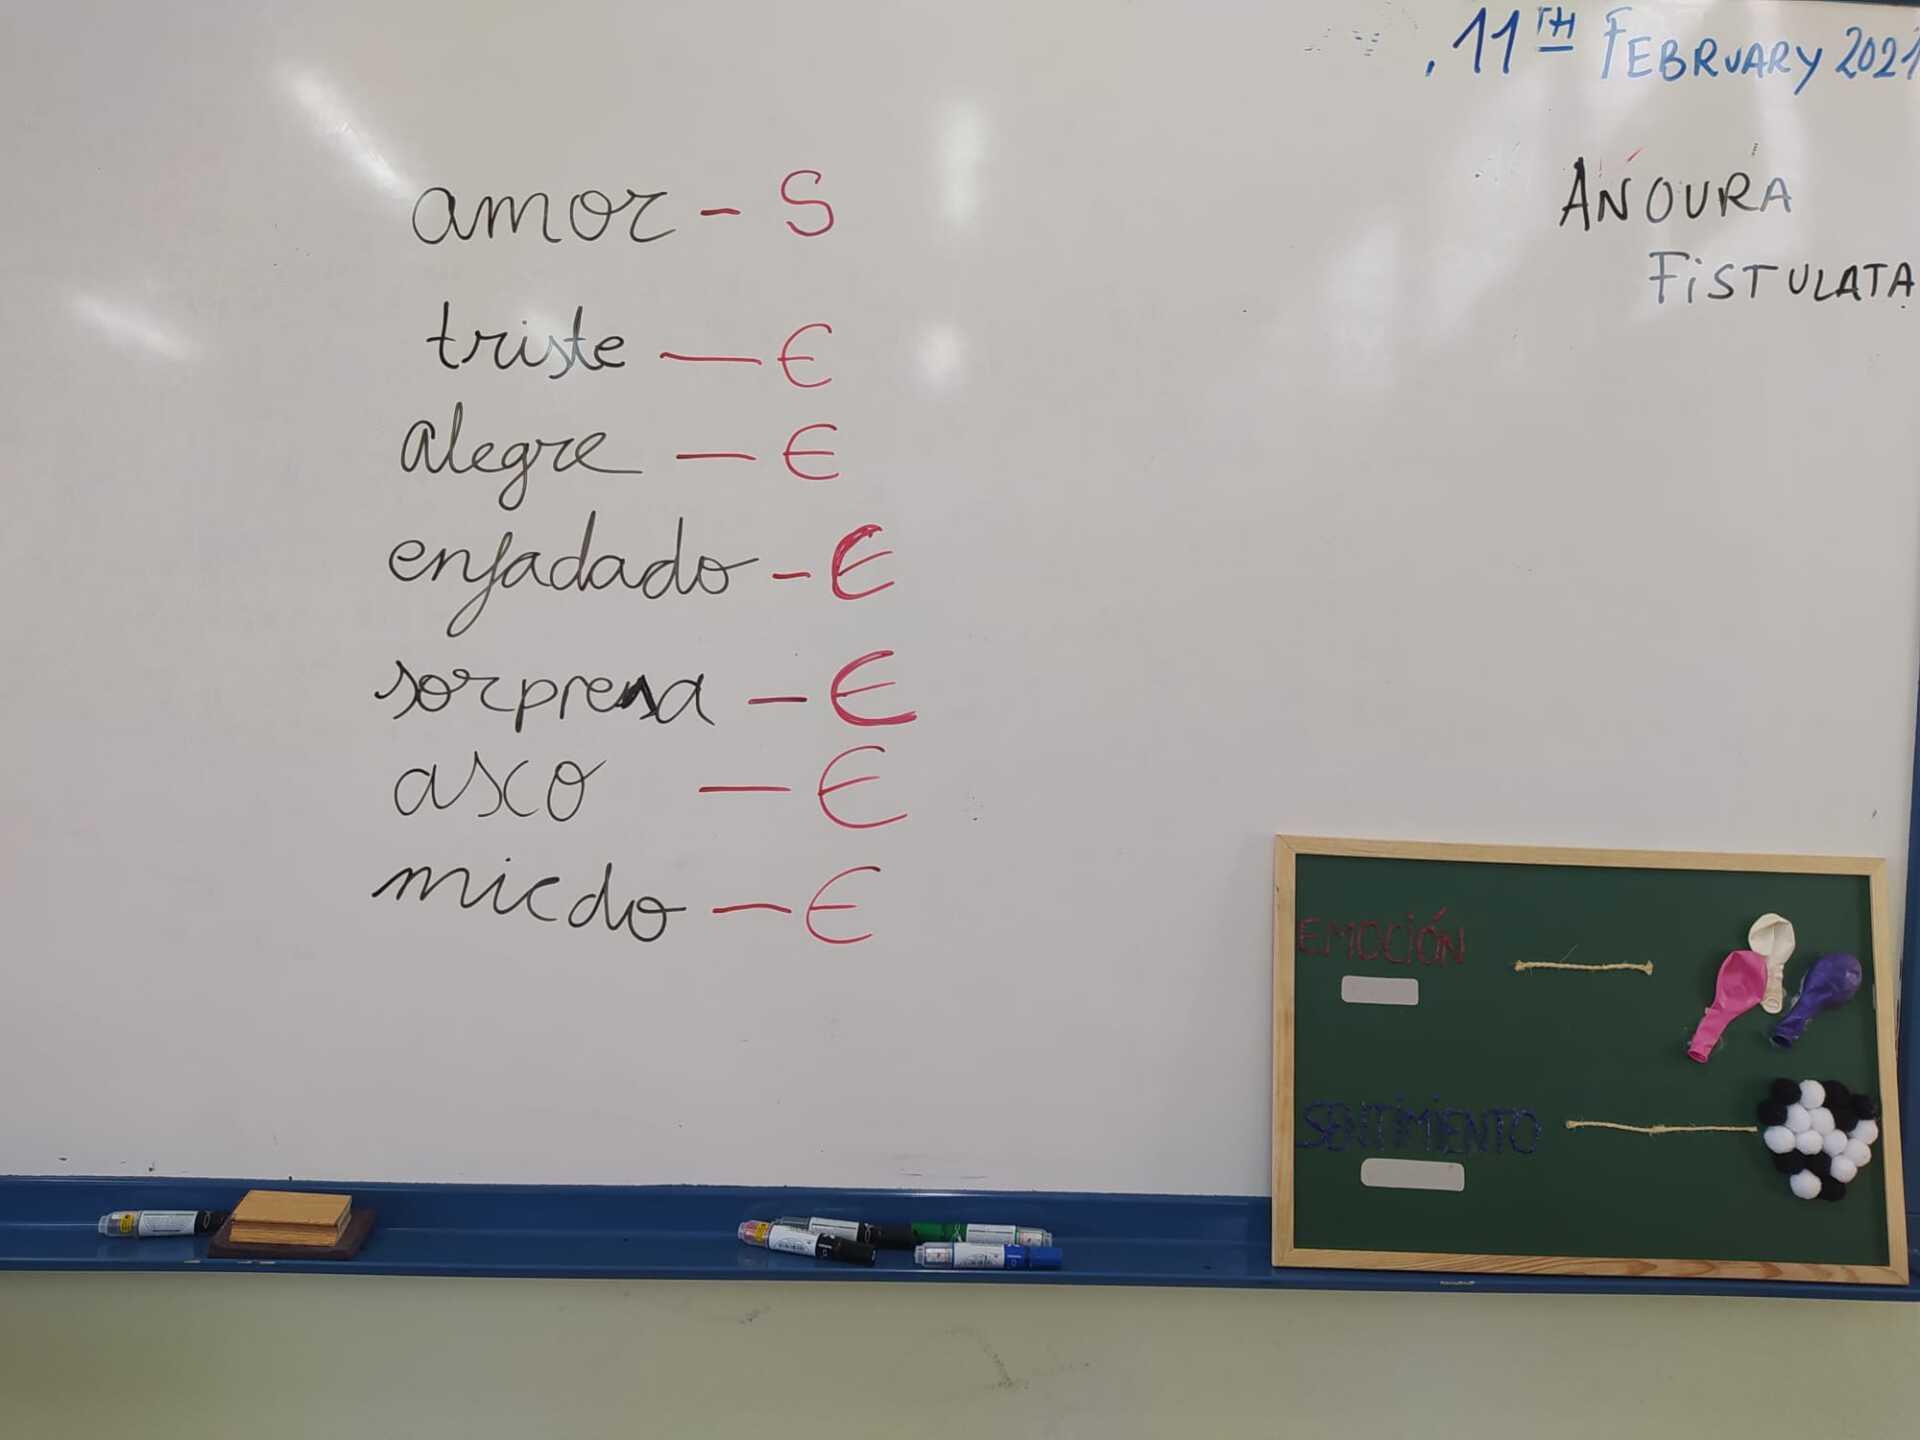 . 11TH FEBRUARY 2021
ANOURA
FISTULATA
amor - S
triste - E
alegre - E
enfadado - E
sorpresa - E
asco - E
miedo - E
EMOCIÓN
SENTIMIENTO